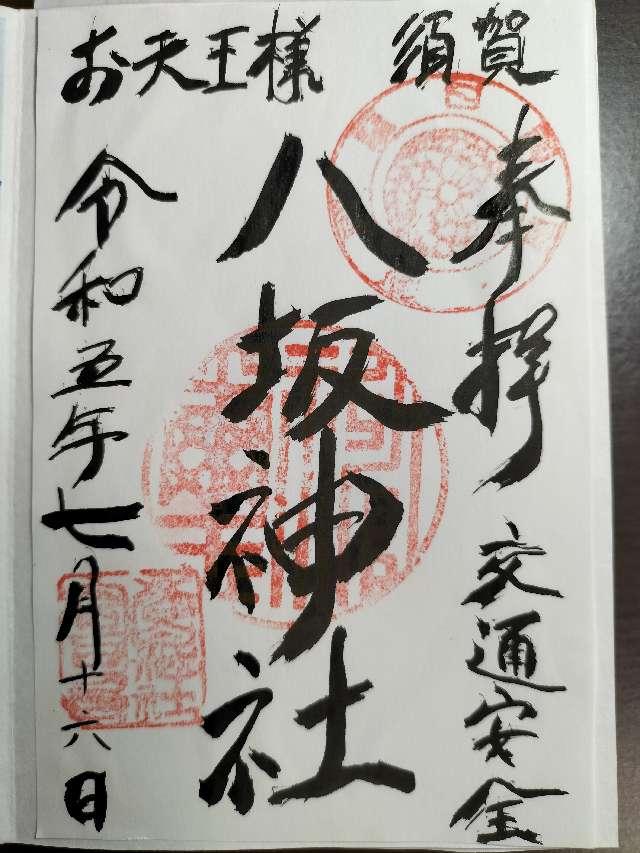 須賀
奉拝 交通安全
八坂神社
お天王様
令和五年七月十六日